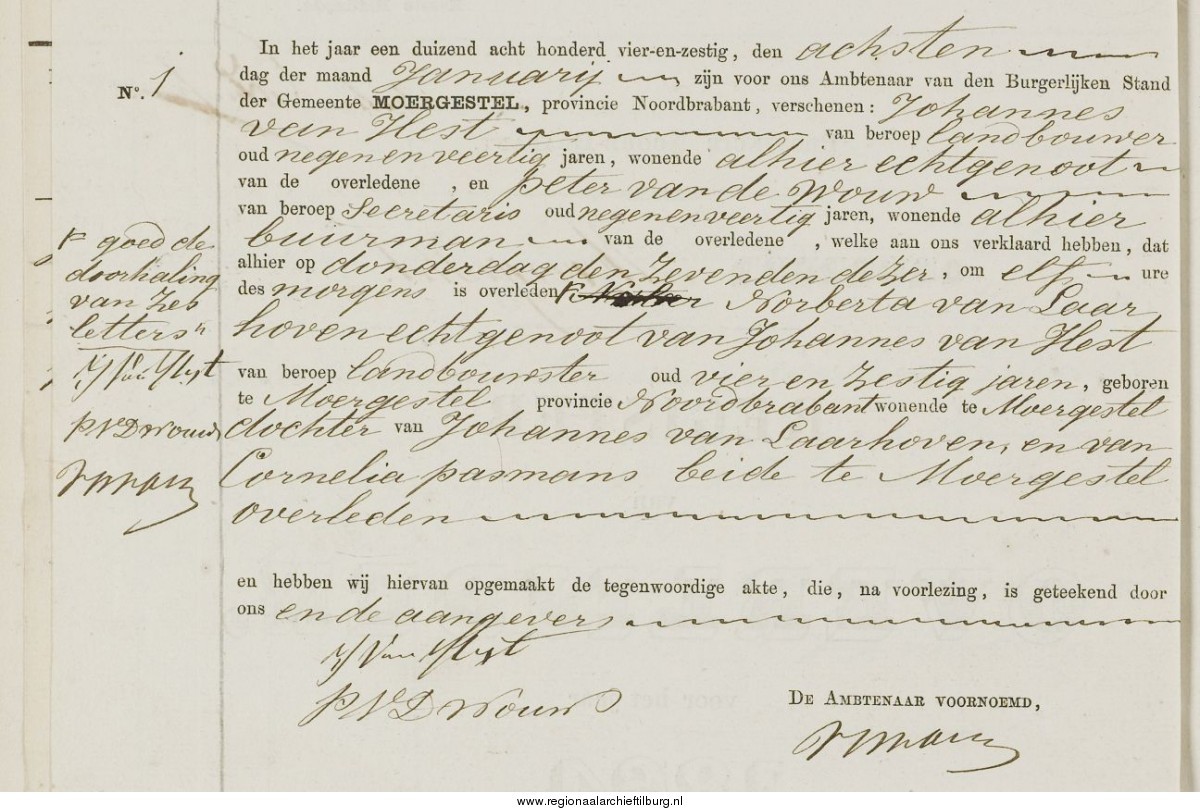 N⁰. 1
In het jaar een duizend acht honderd vier-en-zestig, den achsten
dag der maand Januarij zijn voor ons Ambtenaar van den Burgerlijken Stand
der Gemeente MOERGESTEL, provincie Noordbrabant, verschenen: Johannes
van Hest van beroep landbouwer
oud negenenveertig jaren, wonende alhier echtgenoot
van de overledene, en peter van de Wouw
van beroep Secretaris oud negenenveertig jaren, wonende alhier
buurman van de overledene, welke aan ons verklaard hebben, dat
alhier op donderdag den zevenden dezer, om elf ure
des morgens is overleden Norberta van Laar
hoven echtgenoot van Johannes van Hest
van beroep landbouwster oud vier en zestig jaren, geboren
te Moergestel provincie Noordbrabant wonende te Moergestel
dochter van Johannes van Laarhoven, en van
Cornelia pasmans beide te Moergestel
overleden
en hebben wij hiervan opgemaakt de tegenwoordige akte, die, na voorlezing, is geteekend door
ons en de aangevers
J Van Hest
P V D Wouw
DE AMBTENAAR VOORNOEMD,
goed de
doorhaling
van zes
letters"
J Van Hest
P V D Wouw
www.regionaalarchieftilburg.nl